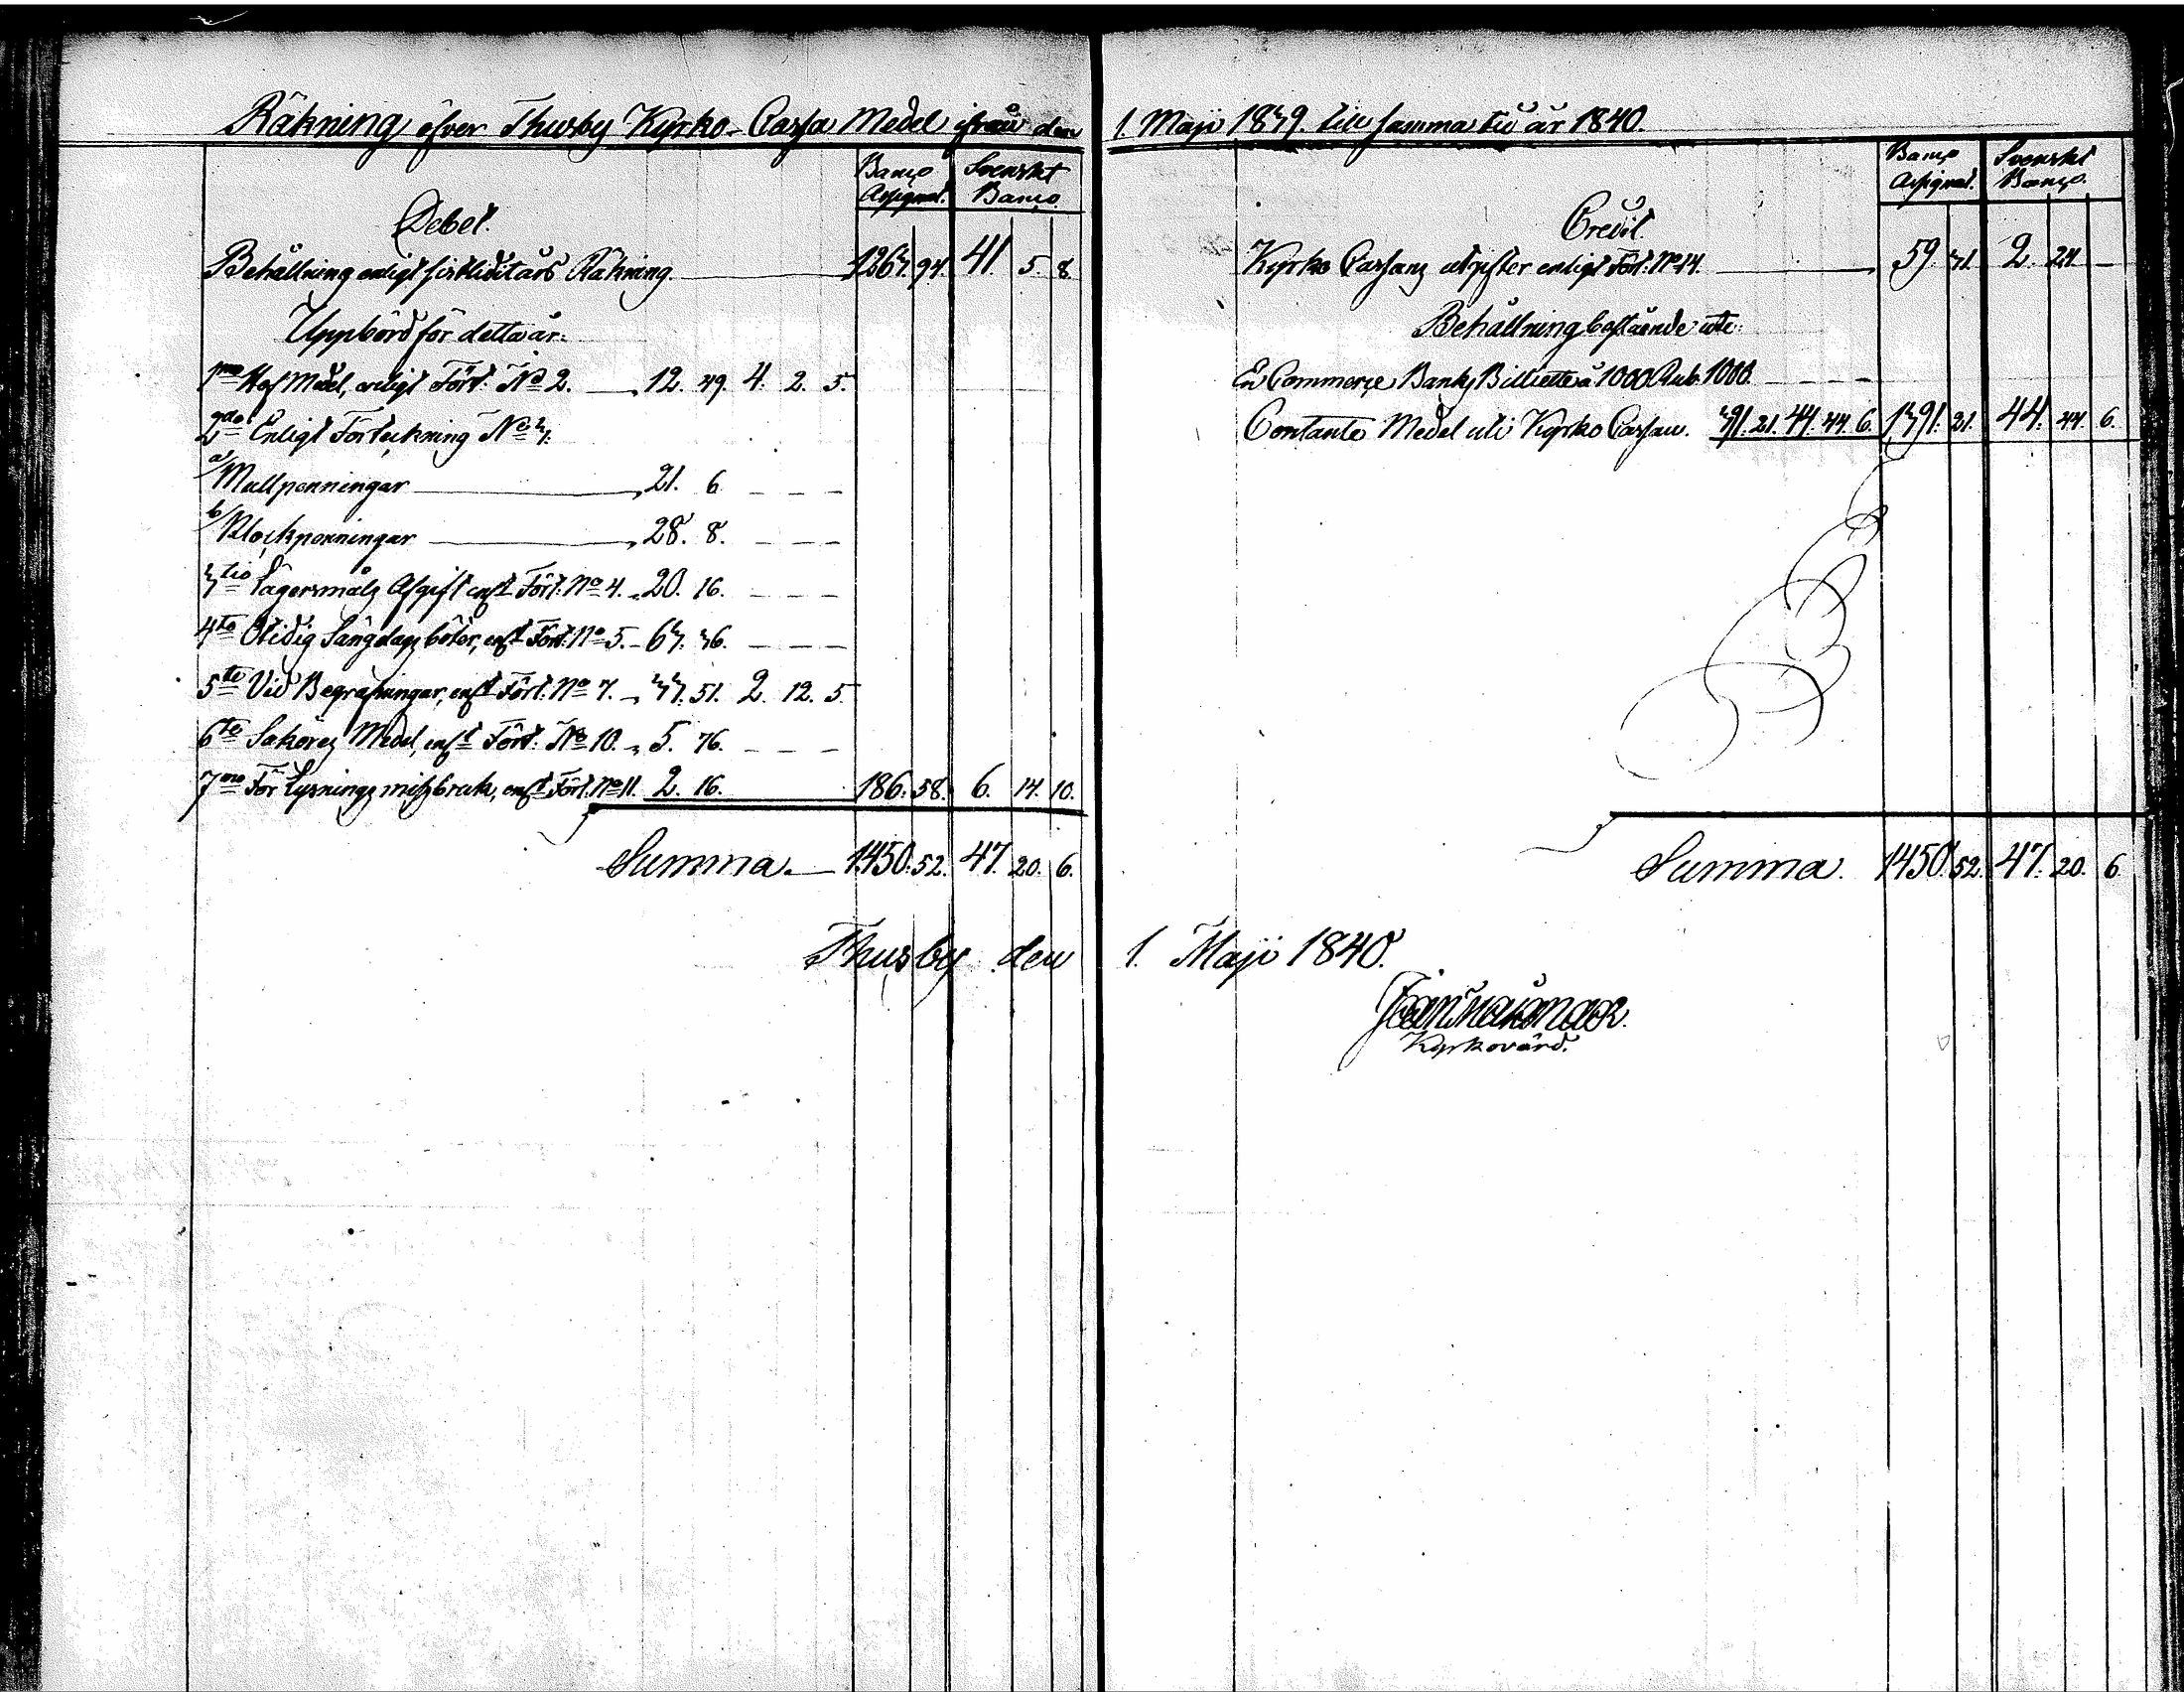 Räkning öfver Thusby Kyrko-Cassa Medel ifrån den 1. Maji 1839. till samma tid år 1840.
Banco Assignat. Svenskt Banco.
Debet.
Behållning enligt sistlidit års Räkning. 1263. 94. 41. 5. 8.
Uppbörd för detta år:
1mo Håf Medel, enligt Fört: No 2. 12. 49. 4. 2. 5.
2do Enligt Förteckning No 3:
a/ Mullpenningar 21. 6. - - -
b/ Klockpenningar 28. 8. - - -
3tio Lägersmåls Afgift enl:t Fört: No 4. 20. 16. - - -
4to Otidig Sänglags böter, enl:t Fört: No 5. 63. 36. - - -
5to Vid Begrafningar, enl:t Fört: No 7. 33. 51. 2. 12. 5.
6to Saköres Medel, enl:t Fört: No 10. 5. 76. - - -
7mo För Lysnings missbruk, enl:t Fört: No 11. 2. 16. 186. 58. 6. 14. 10.
Summa. 1450. 52. 47. 20. 6.
Banco Assignat. Svenskt Banco.
Credit
Kyrko Cassans utgifter enligt Fört: No 14. 59. 31. 2. 24. -
Behållning bestående uti:
En Commerce Banks Billiette à 1000 Rub. 1000. - - - -
Contante Medel uti Kyrko Cassan. 391. 21. 44. 44. 6. 1391. 21. 44. 44. 6.
Summa. 1450. 52. 47. 20. 6.
Thusby den 1. Maji 1840.
Kyrkovärd.